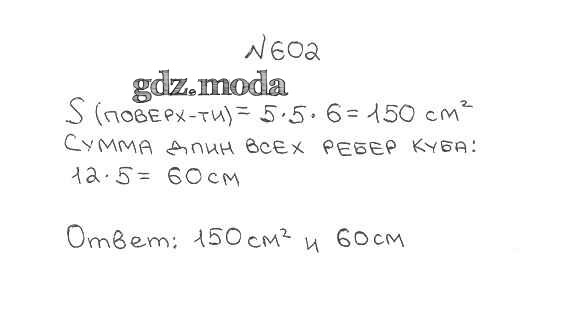 N602
gdz.moda
S (поверх-ти) = 5·5·6 = 150 см²
Сумма длин всех ребер куба:
12·5 = 60 см
Ответ: 150 см² и 60 см